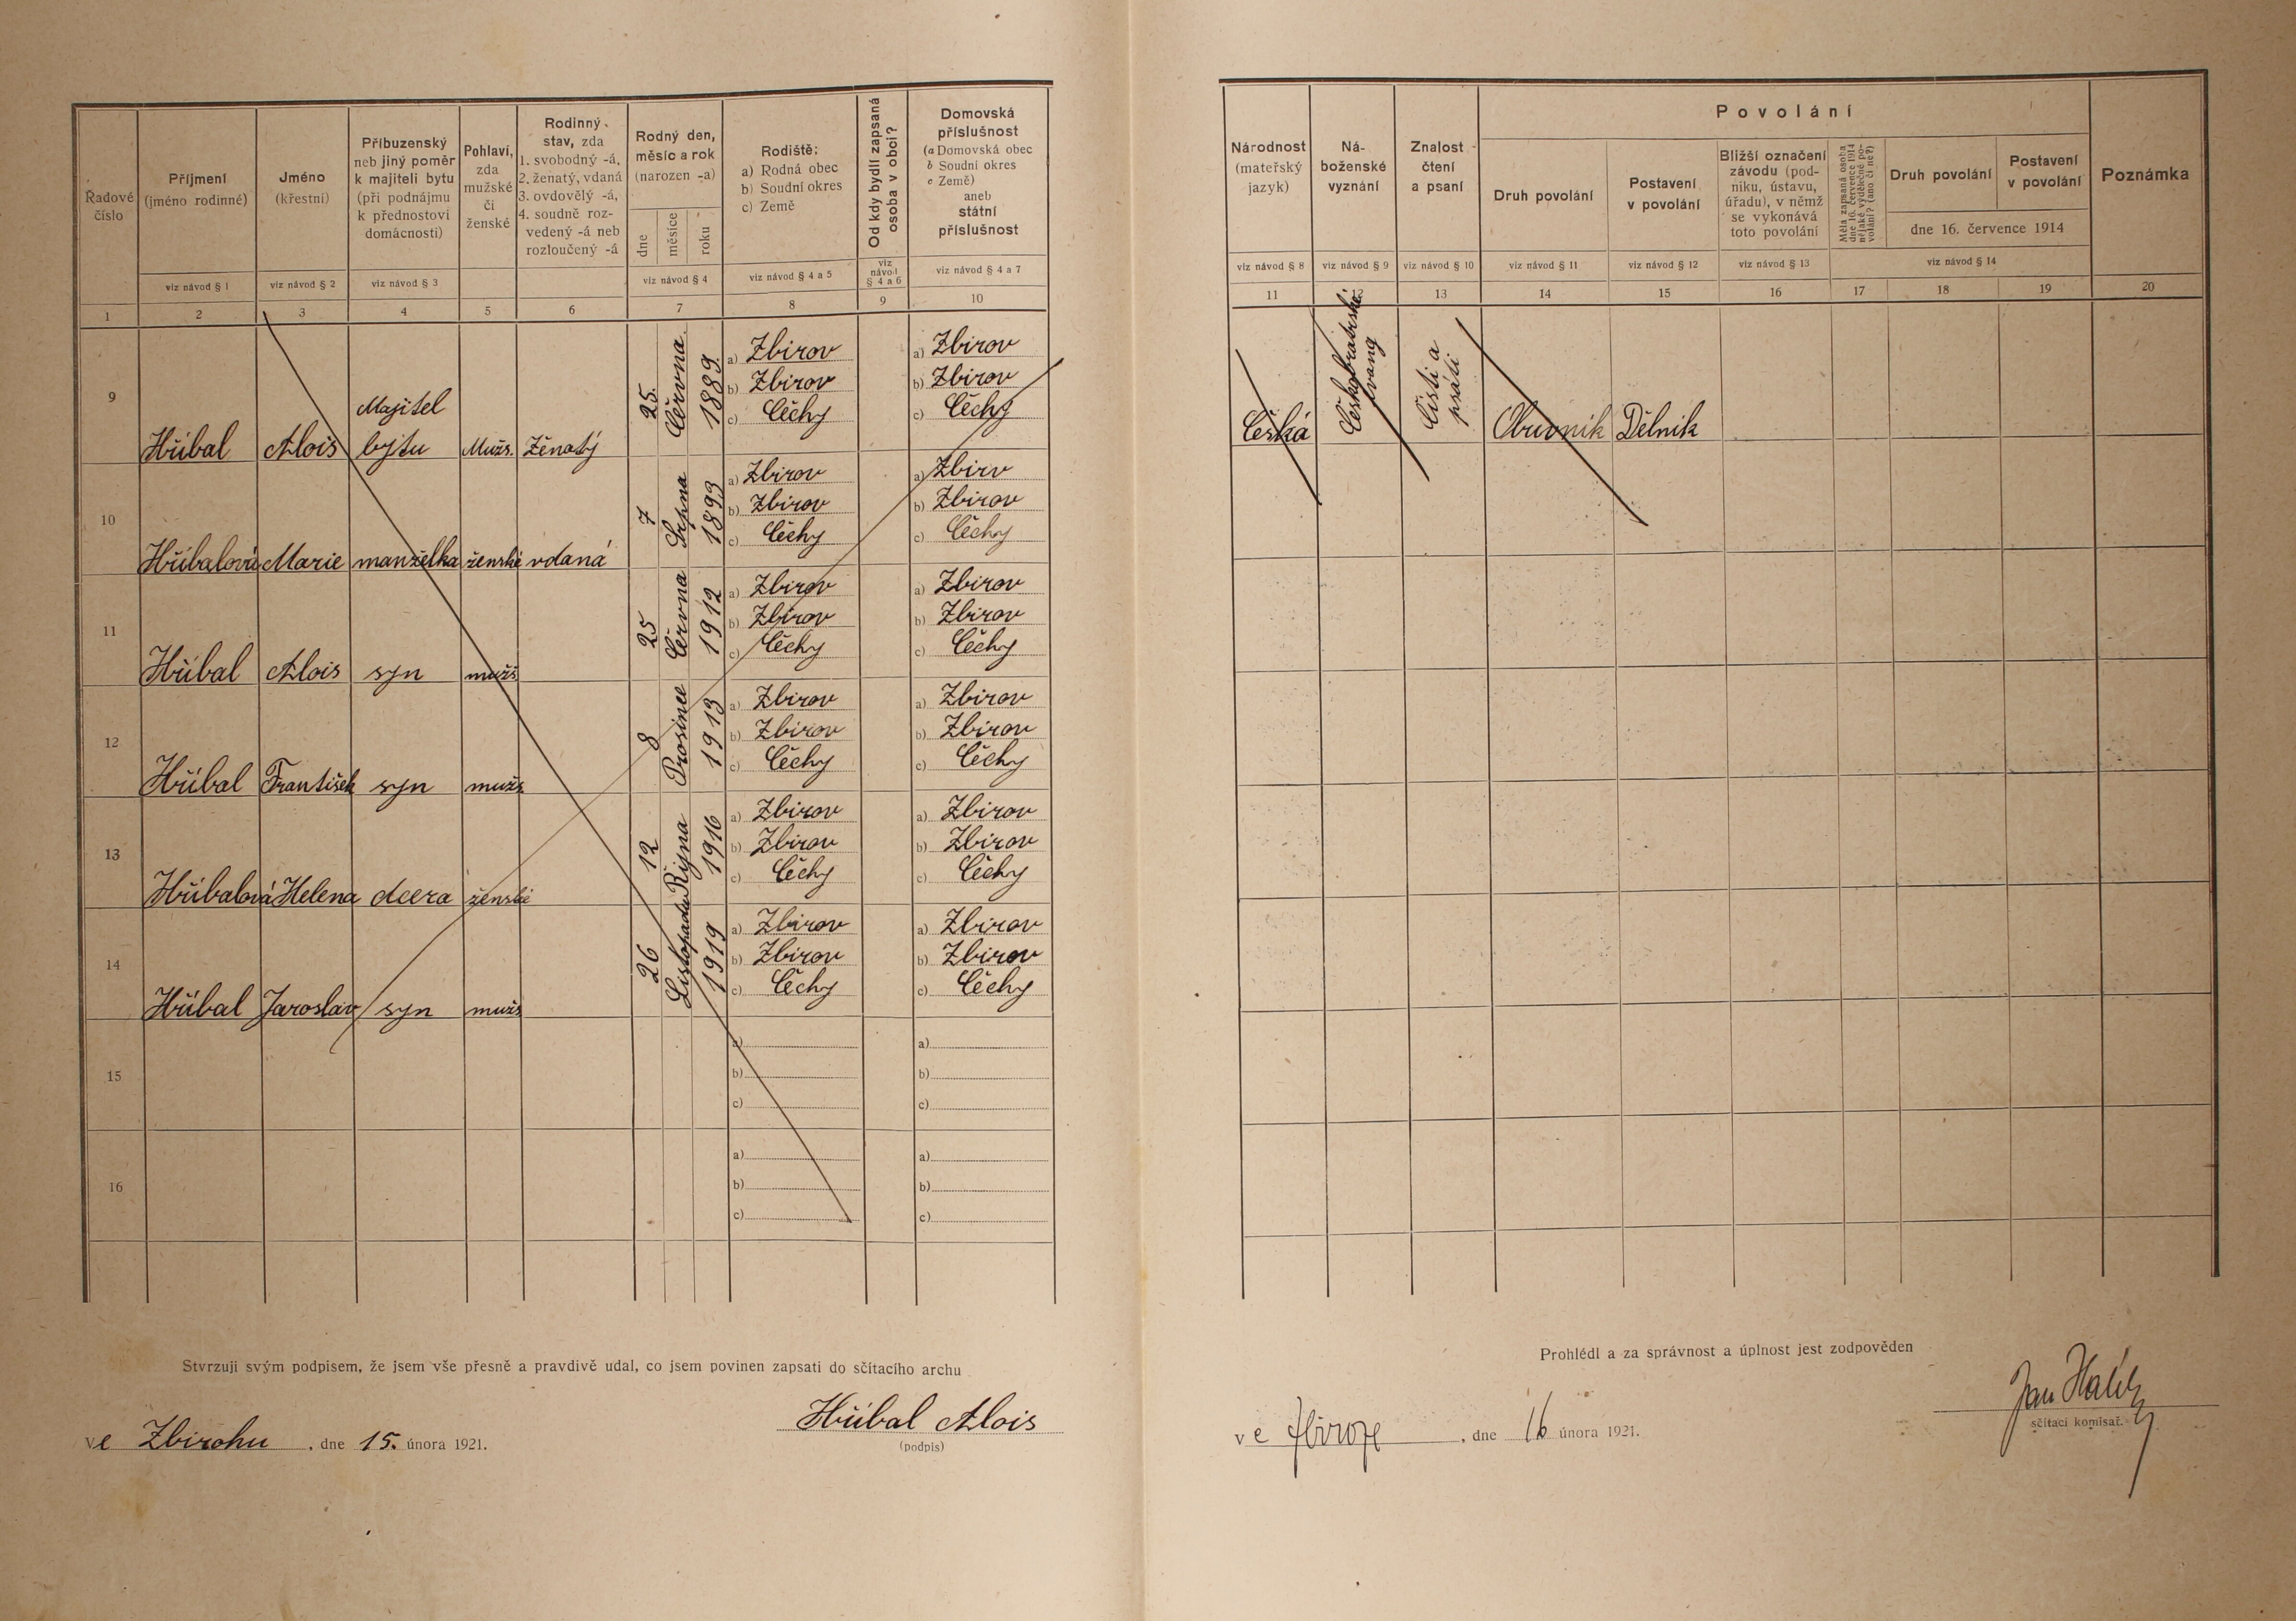 Řadové
číslo
Příjmení
(jméno rodinné)
Jméno
(křestní)
Příbuzenský
neb jiný poměr
k majiteli bytu
(při podnájmu
k přednostovi
domácnosti)
Pohlaví,
zda
mužské
či
ženské
Rodinný
stav, zda
1. svobodný -á,
2. ženatý, vdaná
3. ovdovělý -á,
4. soudně roz-
vedený -á neb
rozloučený -á
Rodný den,
měsíc a rok
(narozen -a)
dne
měsíce
roku
Rodiště:
a) Rodná obec
b) Soudní okres
c) Země
Od kdy bydlí zapsaná
osoba v obci?
Domovská
příslušnost
(a Domovská obec
b Soudní okres
c Země)
aneb
státní
příslušnost
viz návod § 1
viz návod § 2
viz návod § 3
viz návod § 4
viz návod § 4 a 5
viz
návod
§ 4 a 6
viz návod § 4 a 7
1 2 3 4 5 6 7 8 9 10
9
Hříbal Alois
Majitel
bytu
Mužs. Ženatý
25. Června 1889.
a) Zbirov
b) Zbirov
c) Čechy
a) Zbirov
b) Zbirov
c) Čechy
10
Hříbalová Marie manželka ženské vdaná
7 Srpna 1893
a) Zbirov
b) Zbirov
c) Čechy
a) Zbirv
b) Zbirov
c) Čechy
11
Hříbal Alois syn mužs
25 Června 1912
a) Zbirov
b) Zbirov
c) Čechy
a) Zbirov
b) Zbirov
c) Čechy
12
Hříbal František syn mužs
8 Prosince 1913
a) Zbirov
b) Zbirov
c) Čechy
a) Zbirov
b) Zbirov
c) Čechy
13
Hříbalová Helena dcera ženské
12 Října 1916
a) Zbirov
b) Zbirov
c) Čechy
a) Zbirov
b) Zbirov
c) Čechy
14
Hříbal Jaroslav syn mužs
26 Listopadu 1919
a) Zbirov
b) Zbirov
c) Čechy
a) Zbirov
b) Zbirov
c) Čechy
15
a) a)
b) b)
c) c)
16
a) a)
b) b)
c) c)
Stvrzuji svým podpisem, že jsem vše přesně a pravdivě udal, co jsem povinen zapsati do sčítacího archu
Hříbal Alois
(podpis)
ve Zbirohu, dne 15. února 1921.
Národnost
(mateřský
jazyk)
Ná-
boženské
vyznání
Znalost
čtení
a psaní
Povolání
Druh povolání
Postavení
v povolání
Bližší označení
závodu (pod-
niku, ústavu,
úřadu), v němž
se vykonává
toto povolání
Měla zapsaná osoba
dne 16. července 1914
nějaké výdělečné po-
volání? (ano či ne?)
Druh povolání
Postavení
v povolání
dne 16. července 1914
Poznámka
viz návod § 8
viz návod § 9
viz návod § 10
viz návod § 11
viz návod § 12
viz návod § 13
viz návod § 14
11 12 13 14 15 16 17 18 19 20
Česká
Českobratrské
evang
Čísti a
psáti
Obuvník Dělník
Prohlédl a za správnost a úplnost jest zodpověden
Jan
sčítací komisař.
ve Zbiroze, dne 16 února 1921.